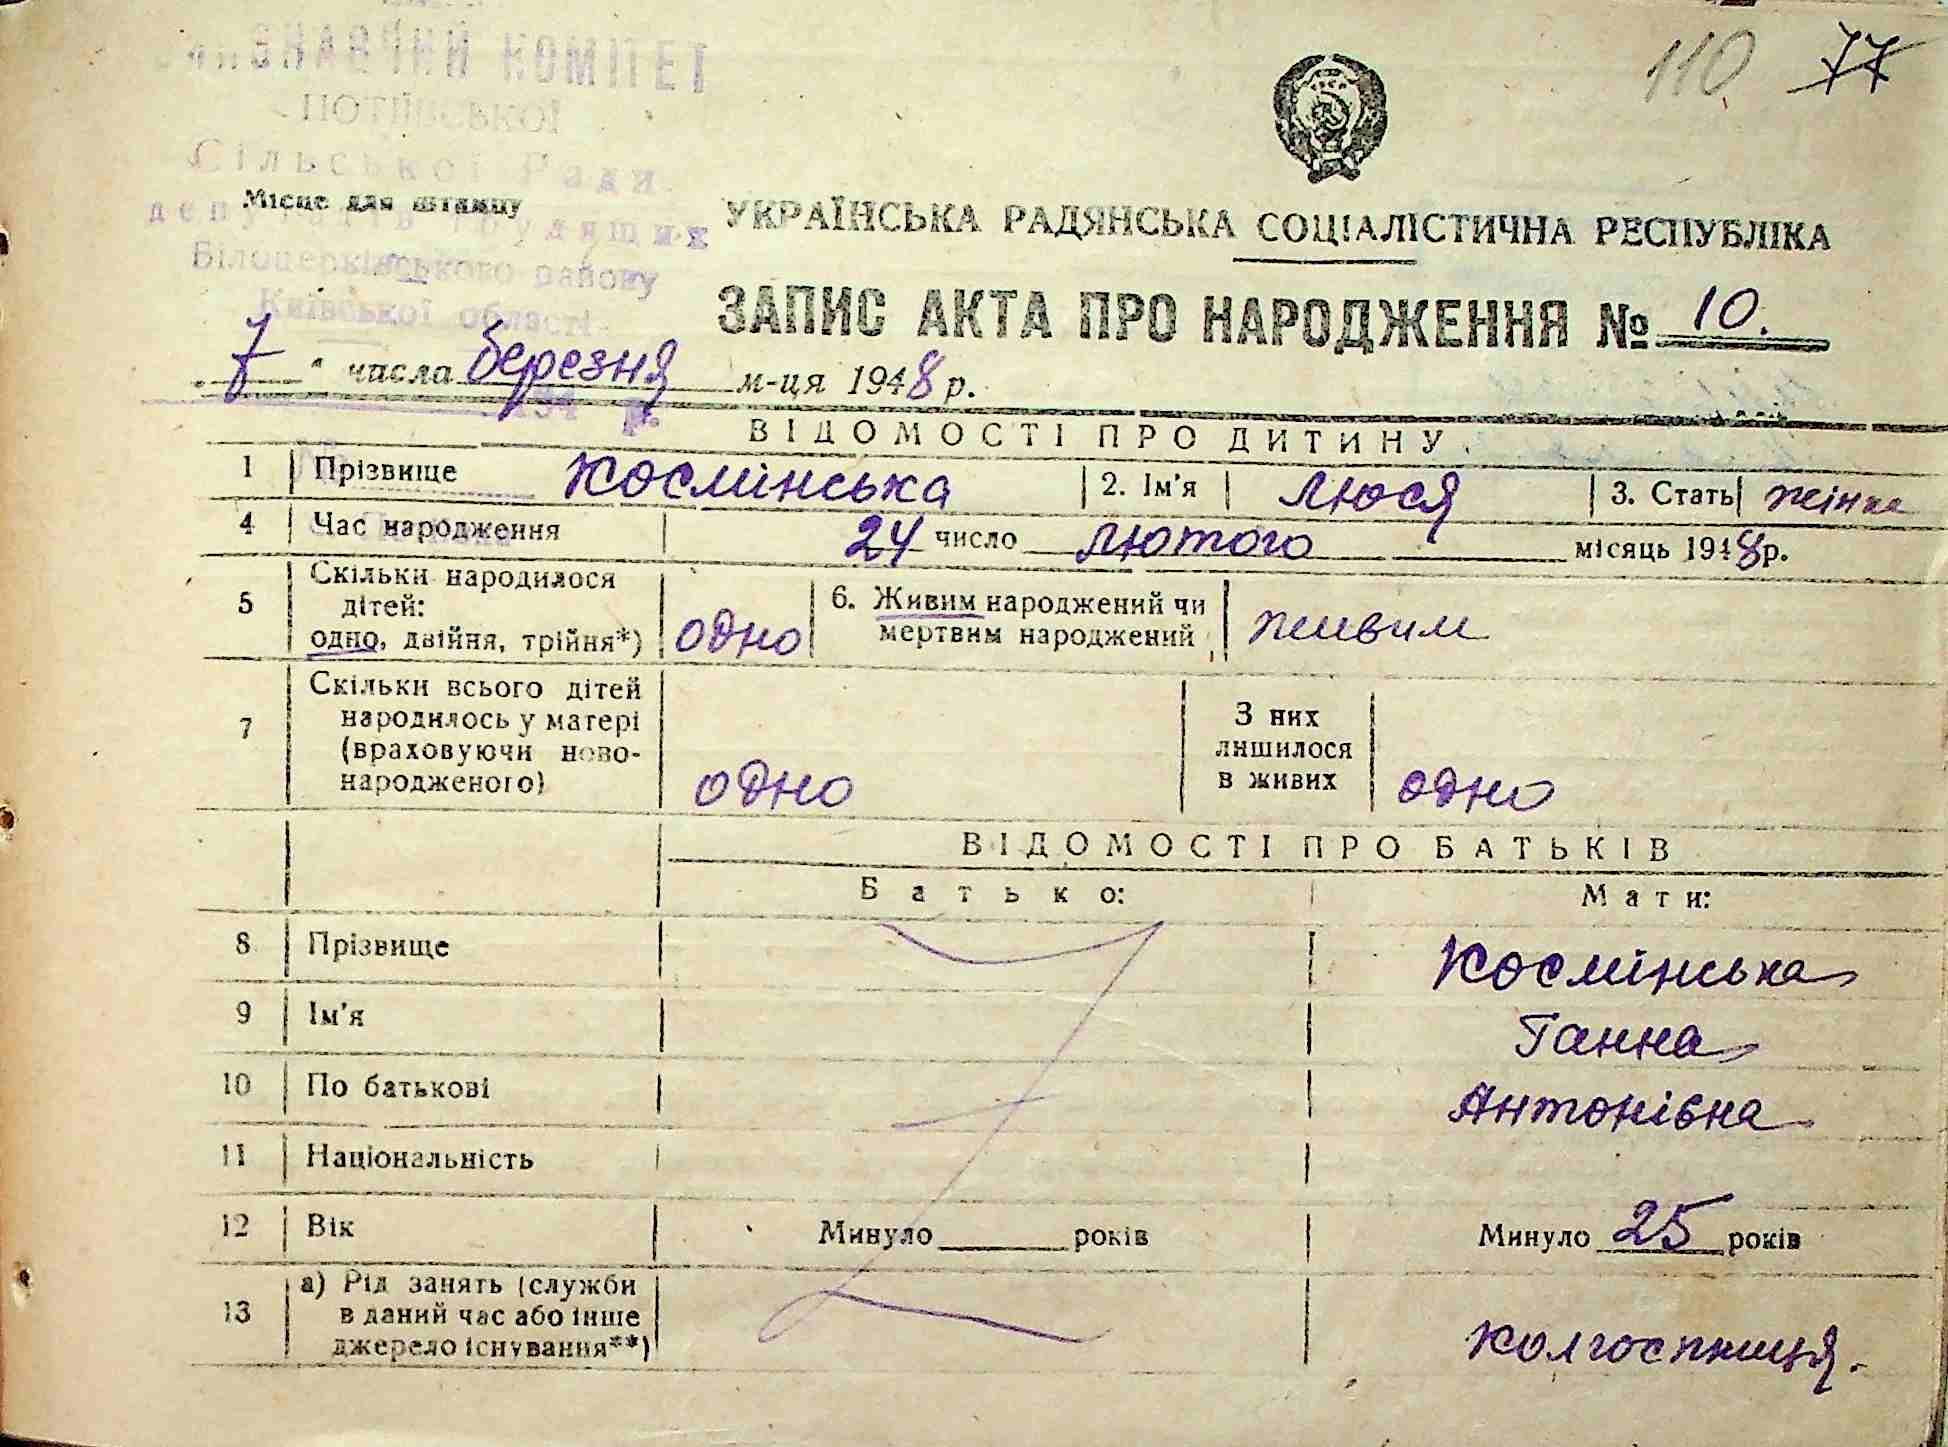 110 77
КОМІТЕТ
Сільської Ради
Місце для штампу
депутатів трудящих
Білоцерківського району
Київської області
УКРАЇНСЬКА РАДЯНСЬКА СОЦІАЛІСТИЧНА РЕСПУБЛІКА
ЗАПИС АКТА ПРО НАРОДЖЕННЯ № 10.
„7" числа березня м-ця 1948 р.
ВІДОМОСТІ ПРО ДИТИНУ
1 Прізвище Космінська 2. Ім'я Люся 3. Стать жінка
4 Час народження 24 число лютого місяць 1948 р.
5 Скільки народилося дітей: одно, двійня, трійня*) одно 6. Живим народжений чи мертвим народжений живим
7 Скільки всього дітей народилось у матері (враховуючи ново-народженого) одно З них лишилося в живих одно
ВІДОМОСТІ ПРО БАТЬКІВ
Батько: Мати:
8 Прізвище Космінська
9 Ім'я Ганна
10 По батькові Антонівна
11 Національність
12 Вік Минуло ______ років Минуло 25 років
13 а) Рід занять (служби в даний час або інше джерело існування**) колгоспниця.